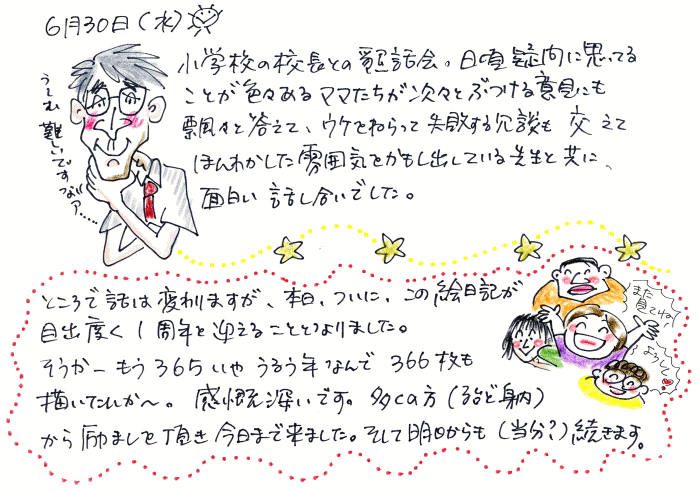 6月30日(水)
小学校の校長との懇話会。日頃疑問に思ってる
ことが色々あるママたちが次々とぶつける意見にも
飄々と答えて、ウケをねらって失敗する冗談も交えて
ほんわかした雰囲気をかもし出している先生と共に、
面白い話し合いでした。
うーむ難しいですなァ……
ところで話は変わりますが、本日、ついに、この絵日記が
目出度く1周年を迎えることとなりました。
そうかーもう365いやうるう年なんで366枚も
描いてたんか〜。感慨深いです。多くの方(ほとど身内)
から励ましを頂き今日まで来ました。そして明日からも(当分?)続きます。
また見てね!